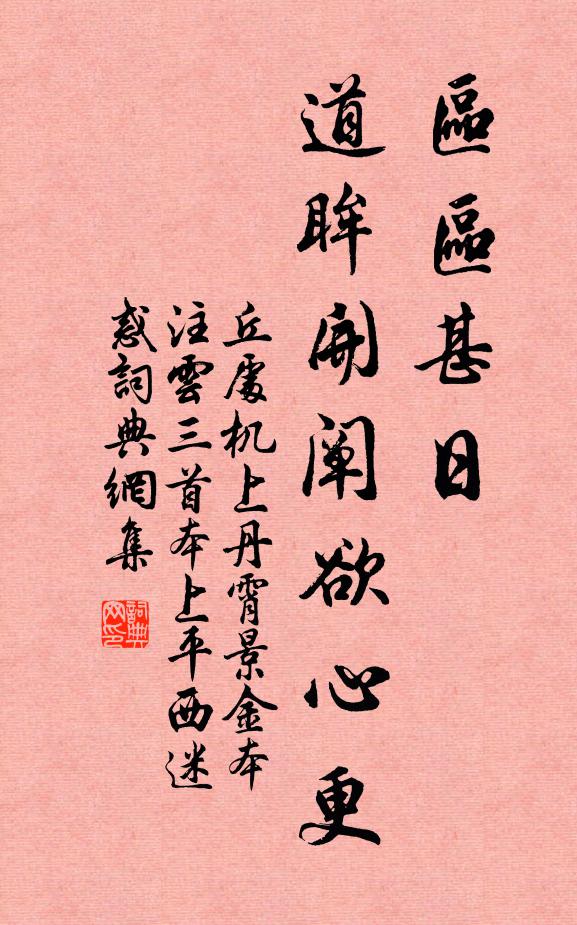 區區甚日
道眸開闡欲心更
丘處机上丹霄景金本
注雲三首本上平西迷
惑詞典網集
詞典网印